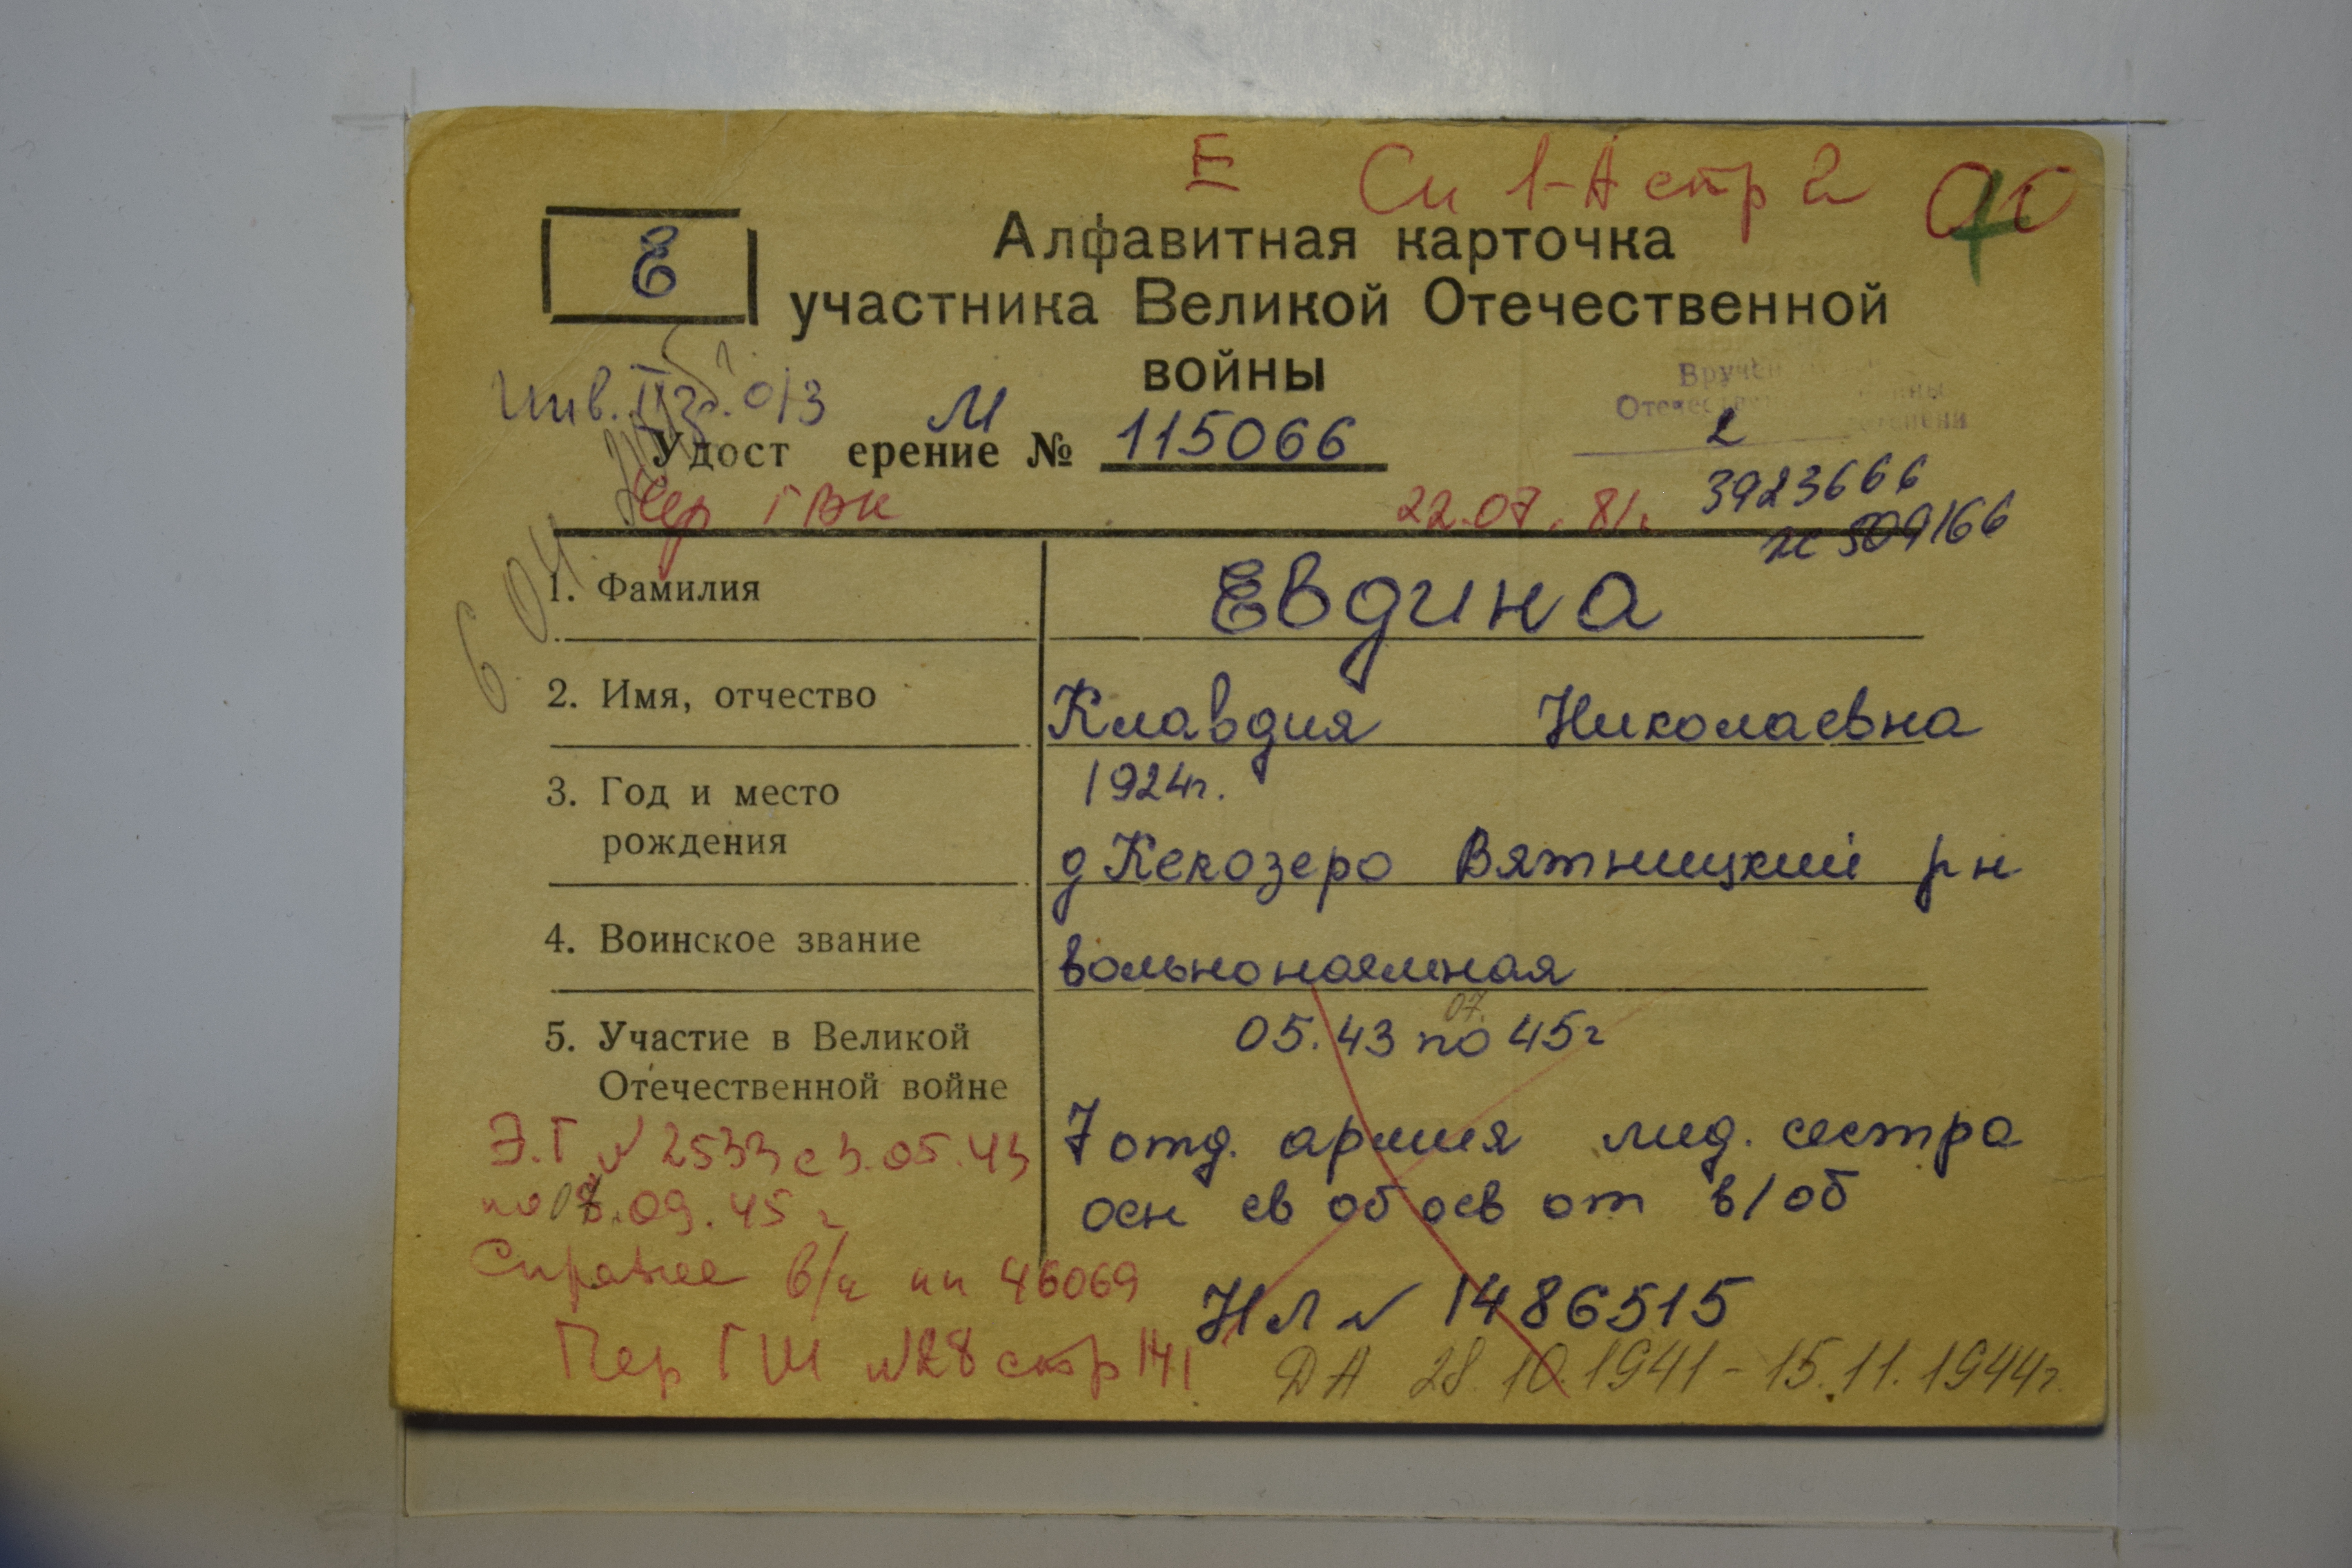 Е Сп 1-А стр 2
Е
Алфавитная карточка
участника Великой Отечественной
войны
Инв. II гр. о/з
Вручен
Отечественной войны
степени
2
Удост ерение М № 115066
3923666
Чер ГВК 22.07.81г.
509166
6.04.
1. Фамилия Евдина
2. Имя, отчество Клавдия Николаевна
3. Год и место 1924г.
рождения д Кекозеро Вятницкий р н
4. Воинское звание вольнонаемная
07.
5. Участие в Великой 05.43 по 45г
Отечественной войне
Э.Г № 2533 с 3.05.43 7 отд. армия мед. сестра
по 09.45 г осн св об осв от в/об
Справка в/ч пп 46069 НЛ № 1486515
Пер ГШ №28 стр 141 ДА 28.10.1941-15.11.1944г.